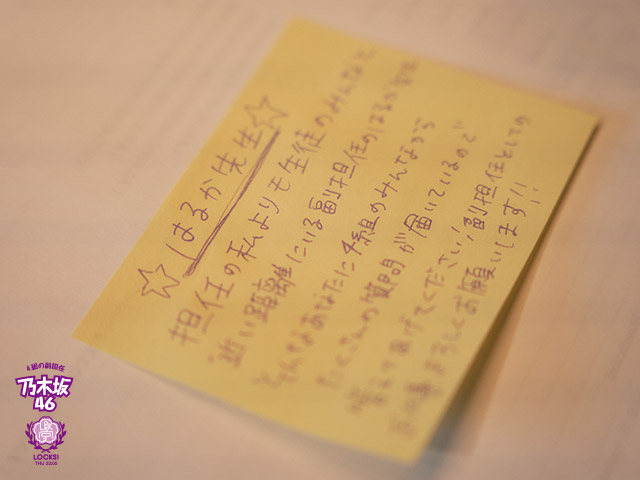 ☆はるか先生☆
担任の私よりも生徒のみんなと
近い距離にいる副担任のはるか先生
そんなあなたに4組のみんなから
たくさんの質問が届いているので
答えてあげてください!副担任としての
お仕事よろしくお願いします!!
4組の副担任
乃木坂
46
LOCKS!
THU 23:05